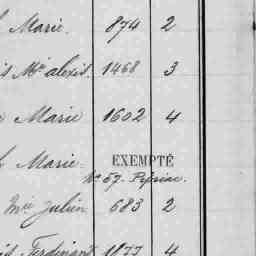 Marie. 874 2
is Mie alexis. 1468 3
Marie 1602 4
Marie. EXEMPTÉ
No 59. Pipriac.
Mie Julien 683 2
is Ferdinant 1877 4